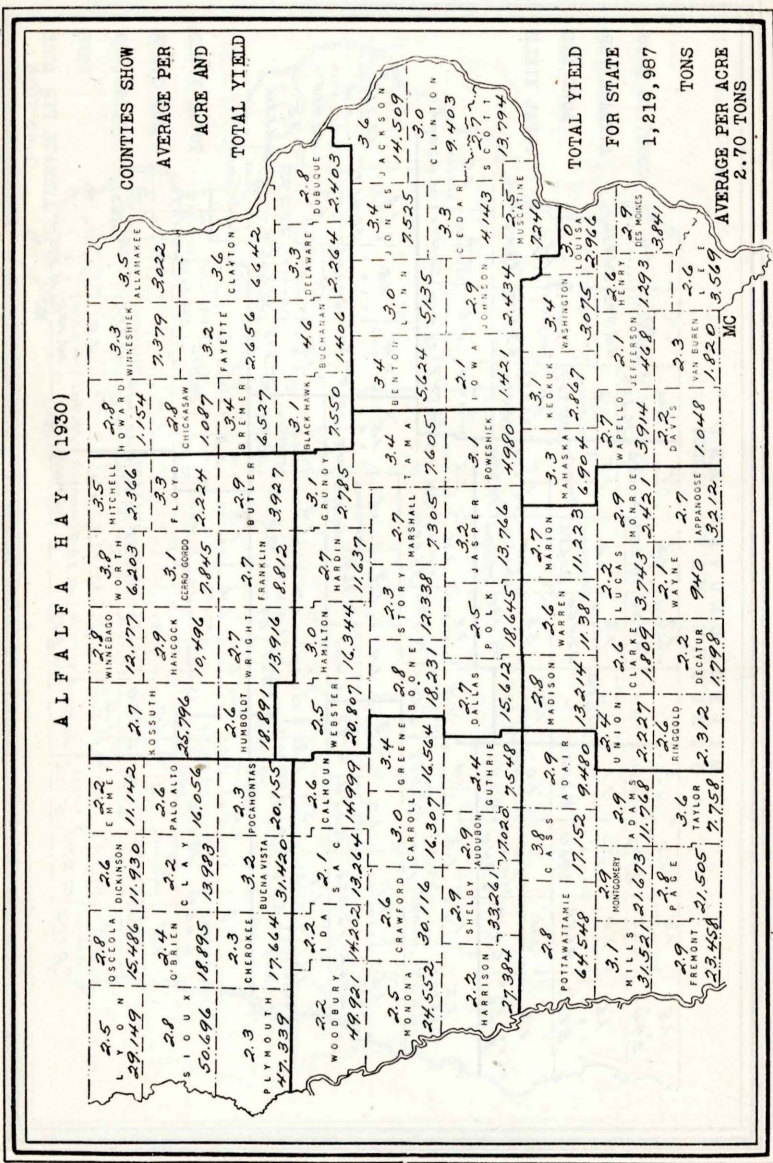 ALFALFA HAY (1930)
COUNTIES SHOW
AVERAGE PER
ACRE AND
TOTAL YIELD
2.5
LYON
29.149
2.8
OSCEOLA
15.486
2.6
DICKINSON
11.930
2.2
EMMET
11.142
2.7
KOSSUTH
25.796
2.8
WINNEBAGO
12.177
3.8
WORTH
6.203
3.5
MITCHELL
2.366
2.8
HOWARD
1.154
3.3
WINNESHIEK
7.379
3.5
ALLAMAKEE
3.022
2.8
SIOUX
50.696
2.4
O'BRIEN
18.895
2.2
CLAY
13.983
2.6
PALO ALTO
16.056
2.9
HANCOCK
10,496
3.1
CERRO GORDO
7.845
3.3
FLOYD
2.224
2.8
CHICKASAW
1.087
3.2
FAYETTE
2.656
3.6
CLAYTON
6.642
2.3
PLYMOUTH
47.339
2.3
CHEROKEE
17.664
3.2
BUENA VISTA
31.420
2.3
POCAHONTAS
20.155
2.6
HUMBOLDT
18.891
2.7
WRIGHT
13.916
2.7
FRANKLIN
8.812
2.9
BUTLER
3.927
3.4
BREMER
6.527
2.2
WOODBURY
49.921
2.2
IDA
14.202
2.1
SAC
13.264
2.6
CALHOUN
14.999
2.5
WEBSTER
20.807
3.0
HAMILTON
16.344
2.7
HARDIN
11.637
3.1
GRUNDY
2.785
3.1
BLACK HAWK
7.550
4.6
BUCHANAN
1.406
3.3
DELAWARE
2.264
2.8
DUBUQUE
2.403
2.5
MONONA
24.552
2.6
CRAWFORD
30.116
3.0
CARROLL
16.307
3.4
GREENE
16.564
2.8
BOONE
18.231
2.3
STORY
12.338
2.7
MARSHALL
7.305
3.4
TAMA
7.605
3.4
BENTON
5.624
3.0
LINN
5,135
3.4
JONES
7.525
3.6
JACKSON
14.509
3.0
CLINTON
9.403
2.2
HARRISON
27.384
2.9
SHELBY
33.261
2.9
AUDUBON
17.020
2.4
GUTHRIE
7.548
2.7
DALLAS
15.612
2.5
POLK
18.645
3.2
JASPER
13.766
3.1
POWESHIEK
4.980
2.1
IOWA
1.421
2.9
JOHNSON
2.434
3.3
CEDAR
4.143
3.7
SCOTT
13.794
2.5
MUSCATINE
7.240
2.8
POTTAWATTAMIE
64.548
3.8
CASS
17.152
2.9
ADAIR
9.480
2.8
MADISON
13.214
2.6
WARREN
11.381
2.7
MARION
11.223
3.3
MAHASKA
6.904
3.1
KEOKUK
2.867
3.4
WASHINGTON
3.075
3.0
LOUISA
2.966
3.1
MILLS
31.521
2.9
MONTGOMERY
21.673
2.9
ADAMS
11.768
2.4
UNION
2.227
2.6
CLARKE
1.809
2.2
LUCAS
3.743
2.9
MONROE
2.421
2.7
WAPELLO
3.914
2.1
JEFFERSON
468
2.6
HENRY
1.293
2.9
DES MOINES
3.841
2.9
FREMONT
23.458
2.8
PAGE
21.505
3.6
TAYLOR
7.758
2.6
RINGGOLD
2.312
2.2
DECATUR
1.798
2.1
WAYNE
940
2.7
APPANOOSE
3.212
2.2
DAVIS
1.048
2.3
VAN BUREN
1.820
2.6
LEE
3.569
MC
TOTAL YIELD
FOR STATE
1,219,987
TONS
AVERAGE PER ACRE
2.70 TONS